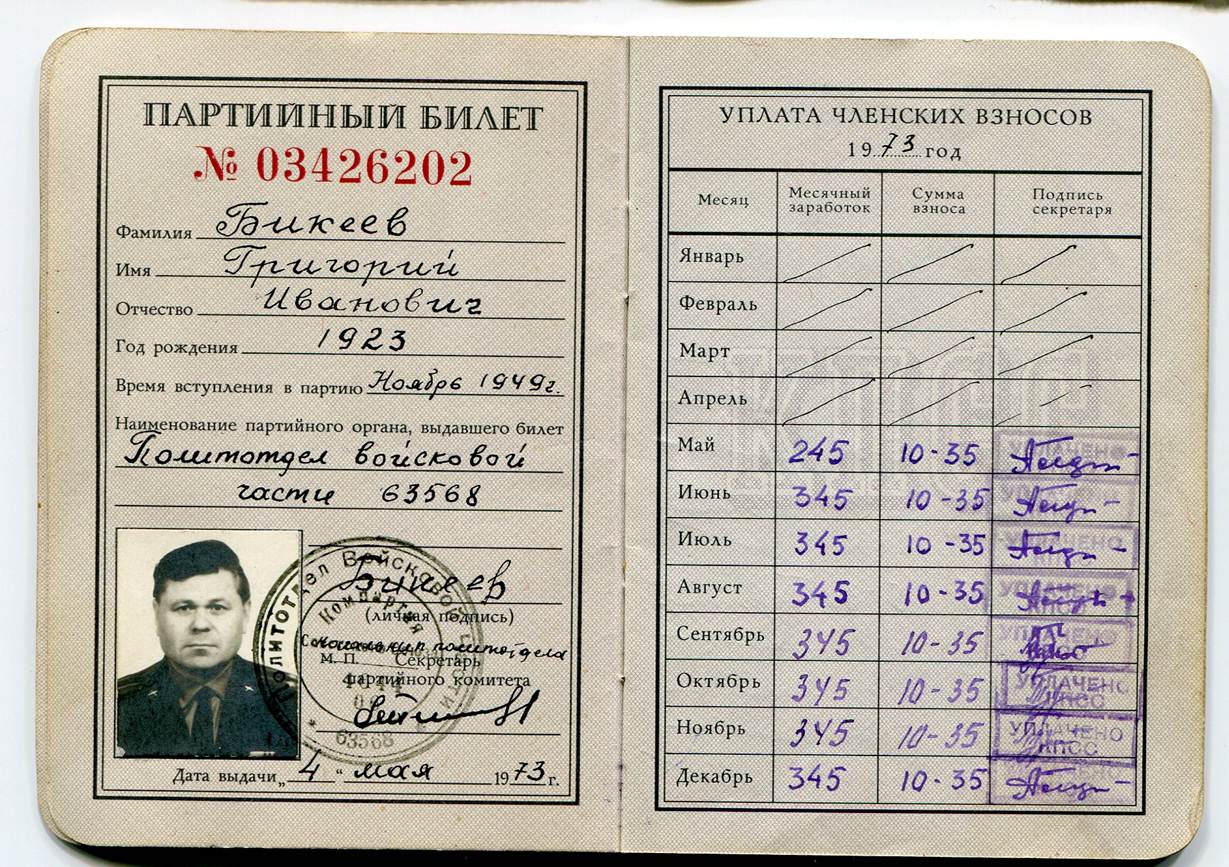 ПАРТИЙНЫЙ БИЛЕТ
№ 03426202
Фамилия Бикеев
Имя Григорий
Отчество Иванович
Год рождения 1923
Время вступления в партию Ноябрь 1949г.
Наименование партийного органа, выдавшего билет
Политотдел войсковой
части 63568
Бикеев
(личная подпись)
начальник политотдела
М. П. Секретарь
партийного комитета
Политотдел Войсковой части
63568
Дата выдачи „4" мая 1973 г.
УПЛАТА ЧЛЕНСКИХ ВЗНОСОВ
1973 год
Месяц Месячный заработок Сумма взноса Подпись секретаря
Январь
Февраль
Март
Апрель
Май 245 10-35 УПЛАЧЕНО
Июнь 345 10-35
Июль 345 10-35 УПЛАЧЕНО КПСС
Август 345 10-35 УПЛАЧЕНО
Сентябрь 345 10-35 УПЛАЧЕНО
Октябрь 345 10-35 УПЛАЧЕНО КПСС
Ноябрь 345 10-35 УПЛАЧЕНО КПСС
Декабрь 345 10-35